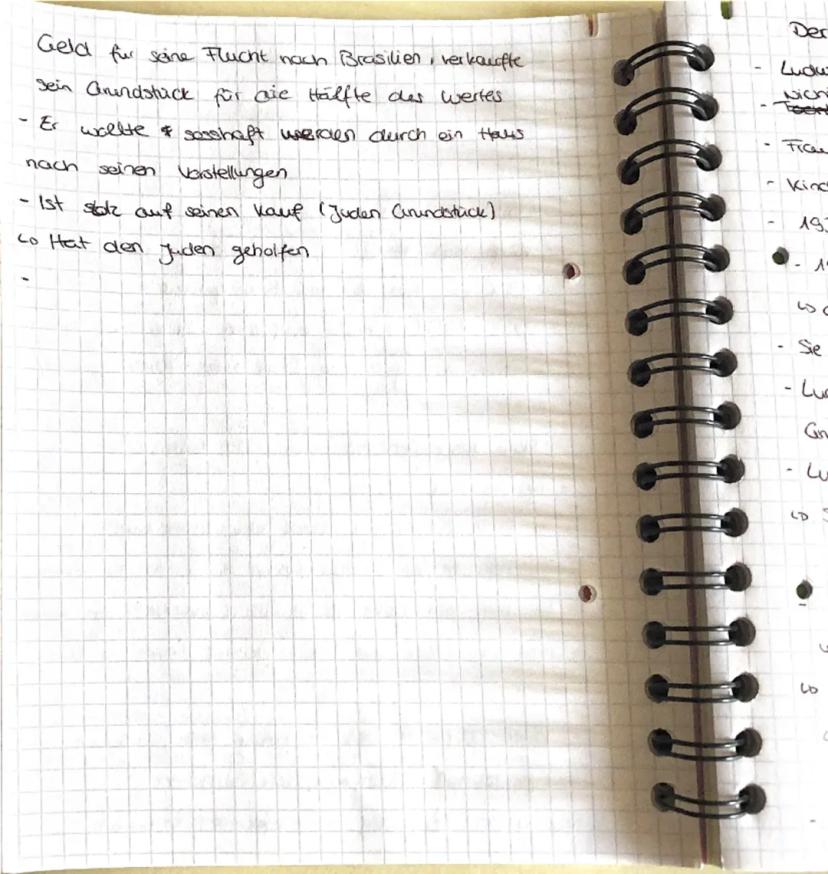 Geld für seine Flucht nach Brasilien, verkaufte
sein Grundstück für die Hälfte des Wertes
- Er wollte sesshaft werden durch ein Haus
nach seinen Vorstellungen
- Ist stolz auf seinen Kauf (Juden Grundstück)
↳ Hat den Juden geholfen
-
Der
- Ludw
Nich
-
- Frau
- Kind
- 193
- 1
↳
- Sie
- Lud
Gr
- Lu
↳
-
↳
-